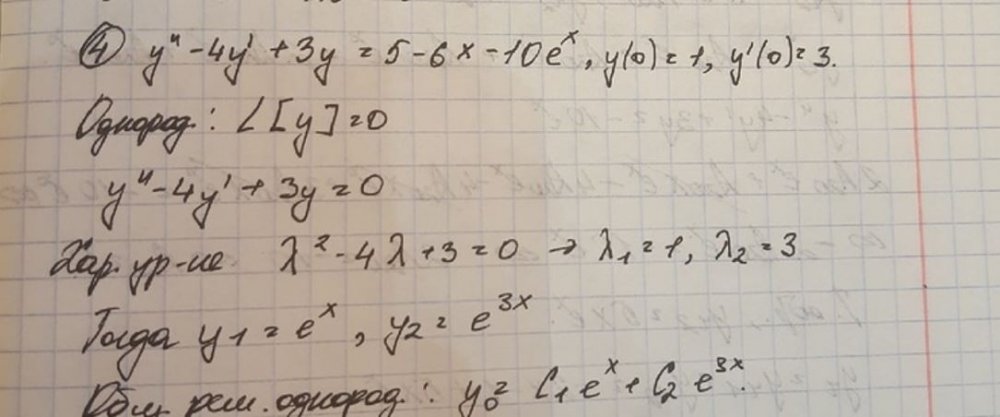 ④ y" - 4y' + 3y = 5 - 6x - 10e^x, y(0) = 1, y'(0) = 3.
Однород.: L[y] = 0
y" - 4y' + 3y = 0
Хар. ур-ие λ² - 4λ + 3 = 0 → λ₁ = 1, λ₂ = 3
Тогда y₁ = e^x, y₂ = e^{3x}
Общ. реш. однород.: y₀ = C₁e^x + C₂e^{3x}.